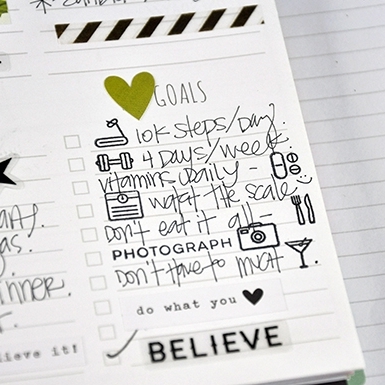 GOALS
10K Steps/day.
4 Days/week.
vitamins daily -
watch the scale
Don't eat it all -
PHOTOGRAPH
Don't have to much.
do what you
BELIEVE
inner.
lieve it!